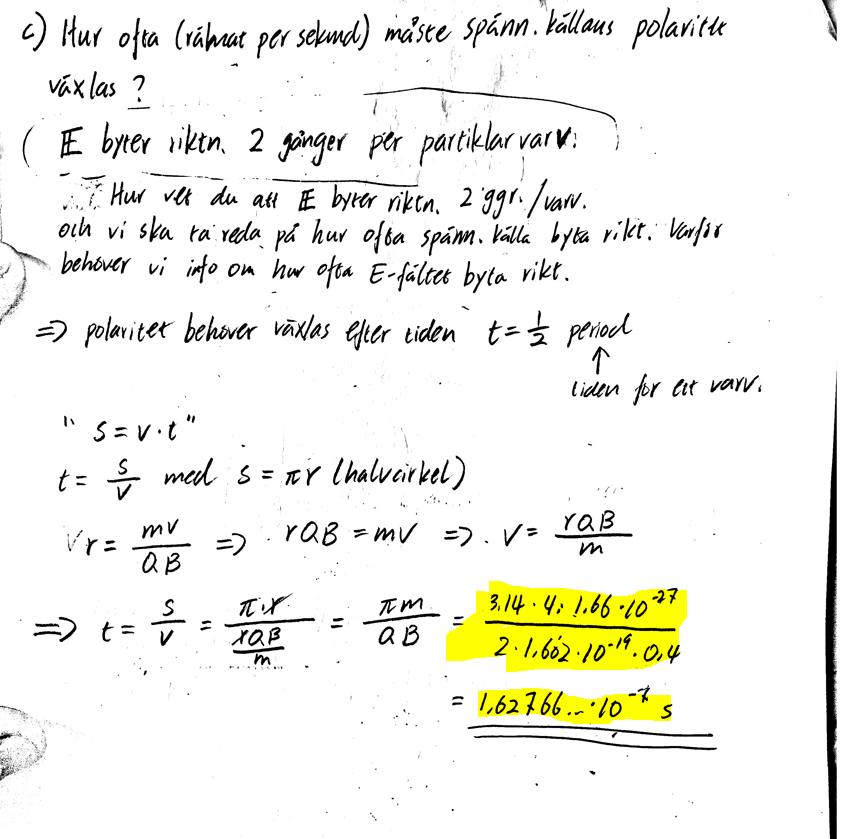 c) Hur ofta (räknat per sekund) måste spänn. källans polaritet
växlas ?
( E byter riktn. 2 gånger per partiklar varv.
Hur vet du att E byter riktn. 2 ggr./varv.
och vi ska ta reda på hur ofta spänn. källa byta rikt. Varför
behöver vi info om hur ofta E-fältet byta rikt.
=> polaritet behöver växlas efter tiden t = 1/2 period
↑
tiden för ett varv.
" s = v·t "
t = s/v med s = πr (halvcirkel)
r = mv/QB => rQB = mv => v = rQB/m
=> t = s/v = π·r/(rQB/m) = πm/QB = 3,14 · 4 · 1,66 · 10^-27/2 · 1,602 · 10^-19 · 0,4
= 1,62766... · 10^-7 s